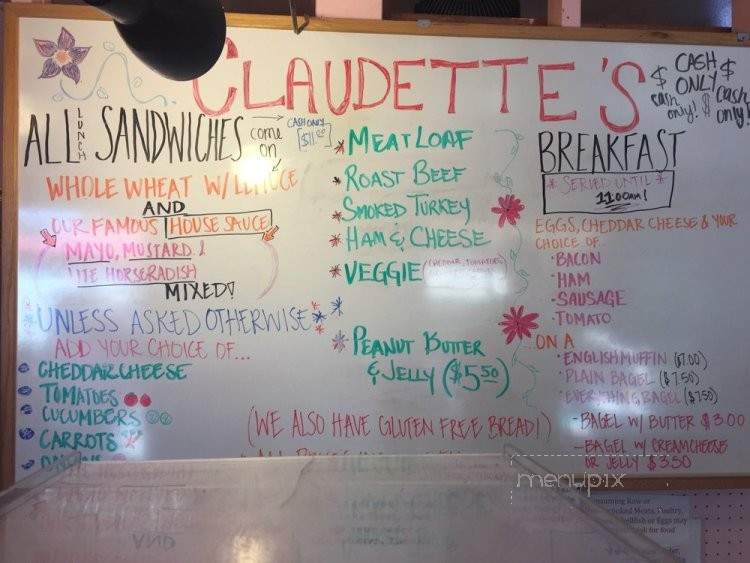 CLAUDETTE'S
$ CASH $
ONLY
cash only!
$ cash only!
ALL LUNCH SANDWICHES
come on
CASH ONLY
WHOLE WHEAT W/ LETTUCE
AND
OUR FAMOUS HOUSE SAUCE
MAYO, MUSTARD &
LITE HORSERADISH
MIXED!
*UNLESS ASKED OTHERWISE*
ADD YOUR CHOICE OF...
CHEDDAR CHEESE
TOMATOES
CUCUMBERS
CARROTS
ONIONS
* MEATLOAF
* ROAST BEEF
* SMOKED TURKEY
* HAM & CHEESE
* VEGGIE (CHEDDAR, TOMATOES
* PEANUT BUTTER
& JELLY ($5.50)
(WE ALSO HAVE GLUTEN FREE BREAD!)
BREAKFAST
* SERVED UNTIL *
11:00am!
EGGS, CHEDDAR CHEESE & YOUR
CHOICE OF...
· BACON
· HAM
· SAUSAGE
· TOMATO
ON A
· ENGLISH MUFFIN ($7.00)
· PLAIN BAGEL ($7.50)
· EVERYTHING BAGEL ($7.50)
- BAGEL W/ BUTTER $3.00
- BAGEL W/ CREAMCHEESE
OR JELLY $3.50
menupix
Raw or
cooked Meats, Poultry,
Shellfish or Eggs may
for food